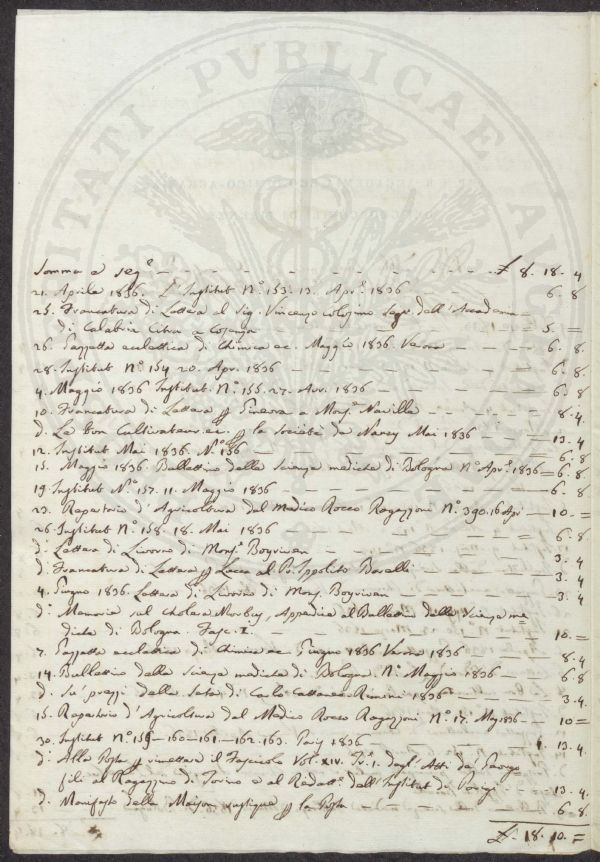 Somma e segᵉ - - - - - - - - £ 8. 18. 4
21. Aprile 1836. L'Institut N.º 153. 13. Aprᵉ 1836 - - - 6. 8
25. Francatura di Lettera al Sig. Vincenzo Colosimo Segr. dell'Accademia
di Calabria Citra a Cosenza - - - 5. =
26. Gazzetta ecclettica di Chimica ec. Maggio 1836. Verona - - - 6. 8.
28. Institut N.º 154 20. Apr. 1836 - - - 6. 8
4. Maggio 1836 Institut. N.º 155. 27. Avr. 1836 - - - 6. 8
10. Francatura di Lettera p Ginevra a Monsʳ Naville - - - 8. 4.
d. Le Bon Cultivateur. ec. p la Societé de Nancy Mai 1836 - - - 13. 4
12. Institut Mai 1836. N.º 156 - - - 6. 8
15. Maggio 1836. Bullettino delle Scienze mediche di Bologna N.º Aprᵉ. 1836 = 6. 8.
19. Institut N.º 157. 11. Maggio 1836 - - - 6. 8
23. Repertorio d'Agricoltura del Medico Rocco Ragazzoni N.º 390. 16 Apr - - 10. =
26. Institut N.º 158. 18. Mai 1836 - - - 6. 8
d. Lettera di Livorno di Monsʳ - - - 3. 4
d. Francatura di Lettera p Lucca al Ippolito - - - 3. 4
4. Giugno 1836. Lettera di Livorno di Monsʳ - - - 3. 4
d. Memoria sul Cholera Morbus, Appendice al Bullettino delle Scienze me=
diche di Bologna. Fasc. I. - - - 10. =
7. Gazzetta ecclettica di Chimica ec Giugno 1836 Verona 1836 - - - 8. 4
14. Bullettino delle Scienze mediche di Bologna. N.º Maggio 1836 - - - 6. 8
d. Su' prezzi della Seta di Carlo Cattaneo 1836 - - - 3. 4.
15. Repertorio d'Agricoltura del Medico Rocco Ragazzoni N.º 17. Mag 1836 - - 10 =
30. Institut N.º 159 - 160 - 161 - 162. 163. Parig 1836 - - - 1. 13. 4.
d. Alla Posta p rimettere il Fascicolo Vol. XIV. Tr. 1. degl'Atti de' Georgo
fili al Ragazzoni di Torino e al Redattᵉ dell'Institut di Parigi - - - 13. 4.
d. Manifesto della Maison rustique p la Posta - - - 6. 8
£. 18. 10. =